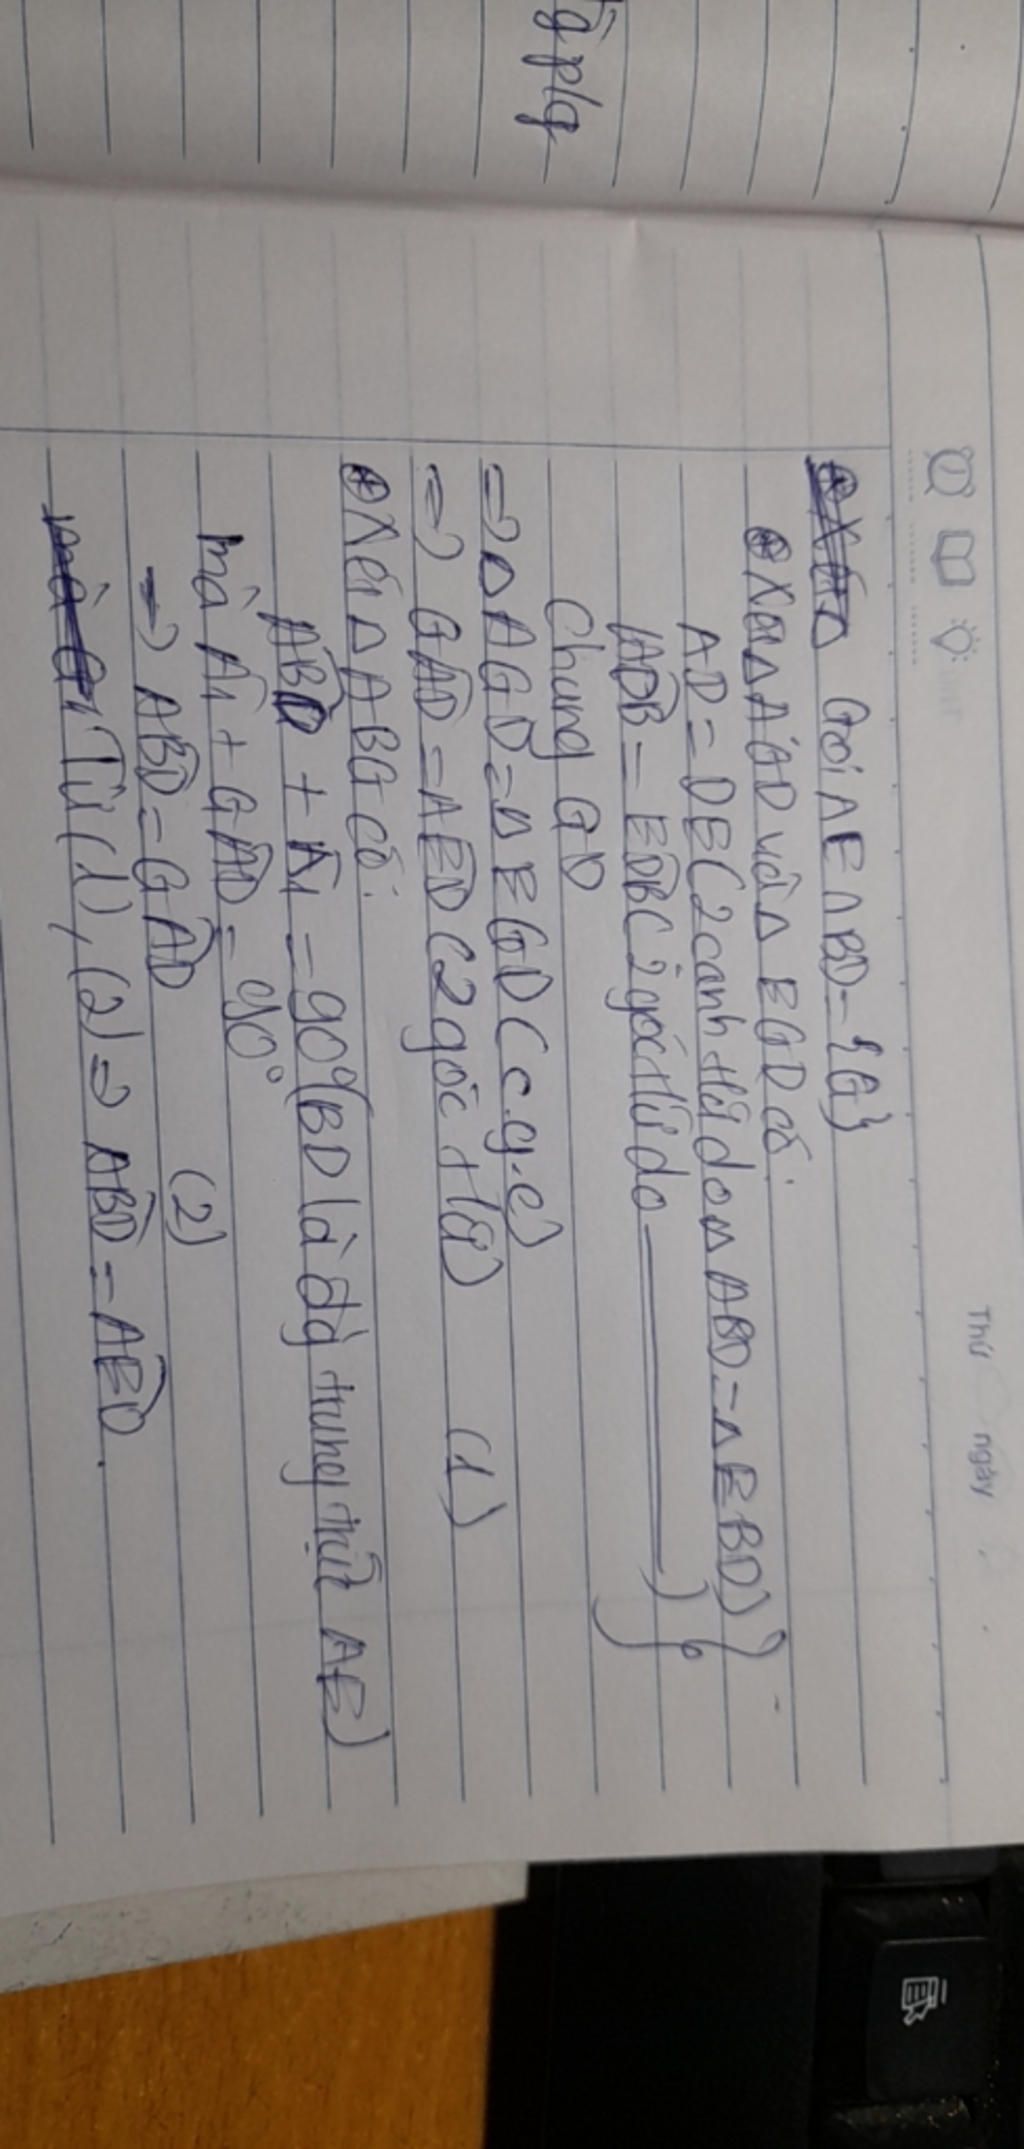 g plg
Thứ ngày
Gọi AE ∩ BD = {G}
⊕ Xét △ AGD và △ EGD có:
AD = DE (2 cạnh tứ do △ ABD = △ EBD)
ADB = EDB (2 góc tứ do ———)
Chung GD
=> △ AGD = △ EGD (c.g.c)
=> GAD = AED (2 góc tứ) (1)
⊕ Xét △ ABG có:
ABD + A1 = 90° (BD là đg trung trực AE)
mà A1 + GAD = 90°
=> ABD = GAD (2)
Từ (1), (2) => ABD = AED.